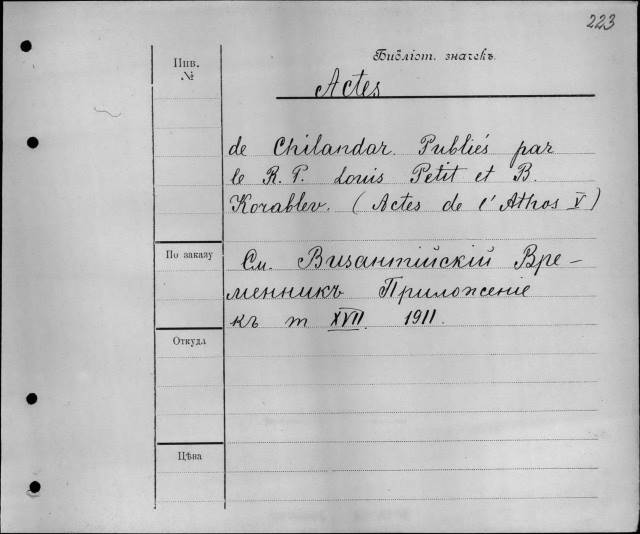 223
Инв. №
Библіот. значекъ.
Actes
de Chilandar. Publiés par
le R. P. Louis Petit et B.
Korablev. (Actes de l'Athos V)
По заказу
См. Византійскій Вре-
менникъ Приложеніе
къ т XVII. 1911.
Откуда
Цѣна